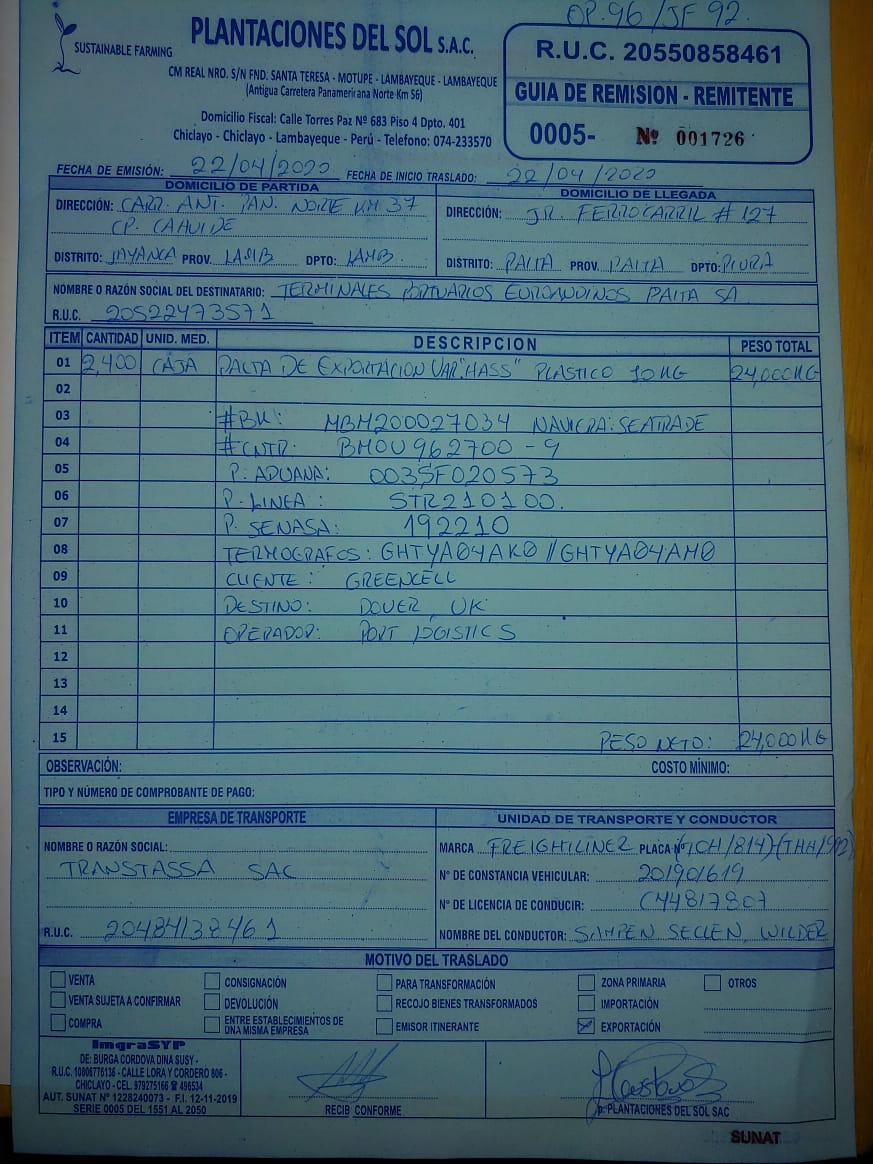 OP. 96 / JF 92.
SUSTAINABLE FARMING
PLANTACIONES DEL SOL S.A.C.
CM REAL NRO. S/N FND. SANTA TERESA - MOTUPE - LAMBAYEQUE - LAMBAYEQUE
(Antigua Carretera Panamericana Norte Km 56)
Domicilio Fiscal: Calle Torres Paz Nº 683 Piso 4 Dpto. 401
Chiclayo - Chiclayo - Lambayeque - Perú - Telefono: 074-233570
R.U.C. 20550858461
GUIA DE REMISION - REMITENTE
0005- Nº 001726
FECHA DE EMISIÓN: 22/04/2020 FECHA DE INICIO TRASLADO: 22/04/2020
DOMICILIO DE PARTIDA
DIRECCIÓN: CARR. ANT. PAN. NORTE KM 37
CP. CAHUIDE
DISTRITO: JAYANCA PROV. LAMB DPTO: LAMB.
DOMICILIO DE LLEGADA
DIRECCIÓN: JR. FERROCARRIL # 127
DISTRITO: PAITA PROV. PAITA DPTO: PIURA
NOMBRE O RAZÓN SOCIAL DEL DESTINATARIO: TERMINALES PORTUARIOS EUROANDINOS PAITA SA
R.U.C. 20522473571
ITEM CANTIDAD UNID. MED. DESCRIPCION PESO TOTAL
01 2,400 CAJA PALTA DE EXPORTACION VAR. "HASS" PLASTICO 10 KG 24,000 KG
02
03 #BK: MBM200027034 NAVIERA: SEATRADE
04 #CNTR: BMOU 962700 - 9
05 P. ADUANA: 003SF020573
06 P. LINEA: STR210100.
07 P. SENASA: 192210
08 TERMOGRAFOS: GHTYA04AK0 // GHTYA04AM0
09 CLIENTE: GREENCELL
10 DESTINO: DOVER, UK
11 OPERADOR: PORT LOGISTICS
12
13
14
15 PESO NETO: 24,000 KG
OBSERVACIÓN: COSTO MÍNIMO:
TIPO Y NÚMERO DE COMPROBANTE DE PAGO:
EMPRESA DE TRANSPORTE
NOMBRE O RAZÓN SOCIAL:
TRANSTASSA SAC
R.U.C. 20484138461
UNIDAD DE TRANSPORTE Y CONDUCTOR
MARCA FREIGHTLINER PLACA Nº
Nº DE CONSTANCIA VEHICULAR: 201901619
Nº DE LICENCIA DE CONDUCIR: C44817807
NOMBRE DEL CONDUCTOR: SAMPEN SECLEN, WILDER
MOTIVO DEL TRASLADO
VENTA CONSIGNACIÓN PARA TRANSFORMACIÓN ZONA PRIMARIA OTROS
VENTA SUJETA A CONFIRMAR DEVOLUCIÓN RECOJO BIENES TRANSFORMADOS IMPORTACIÓN
COMPRA ENTRE ESTABLECIMIENTOS DE UNA MISMA EMPRESA EMISOR ITINERANTE EXPORTACIÓN
ImgraSYP
DE: BURGA CORDOVA DINA SUSY -
R.U.C. 10806776136 - CALLE LORA Y CORDERO 806 -
CHICLAYO - CEL. 979275166 ☎ 496534
AUT. SUNAT Nº 1228240073 - F.I. 12-11-2019
SERIE 0005 DEL 1551 AL 2050
RECIBI CONFORME
p. PLANTACIONES DEL SOL SAC
SUNAT